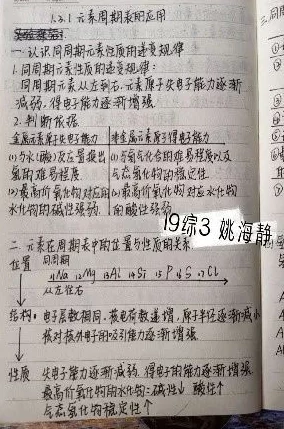 1.3.1 元素周期表的应用
一. 认识同周期元素性质的递变规律
1. 同周期元素性质的递变规律:
同周期元素从左到右,元素原子失电子能力逐渐
减弱,得电子能力逐渐增强
2. 判断依据
金属元素原子失电子能力 非金属元素原子得电子能力
(1) 与水(酸)反应置换出 (1) 与氢气化合的难易程度以及
氢的难易程度 气态氢化物的稳定性
(2) 最高价氧化物对应 (2) 最高价氧化物对应水化物
水化物的碱性强弱 的酸性强弱
19综3 姚海静
二. 元素在周期表中的位置与性质的关系
位置 同周期
11Na 12Mg 13Al 14Si 15P 16S 17Cl
从左往右
结构: 电子层数相同,核电荷数递增,原子半径逐渐减小
核对核外电子的吸引能力逐渐增强
性质 失电子能力逐渐减弱,得电子的能力逐渐增强
最高价氧化物的水化物: 碱性↓ 酸性↑
气态氢化物稳定性↑
三. 同周